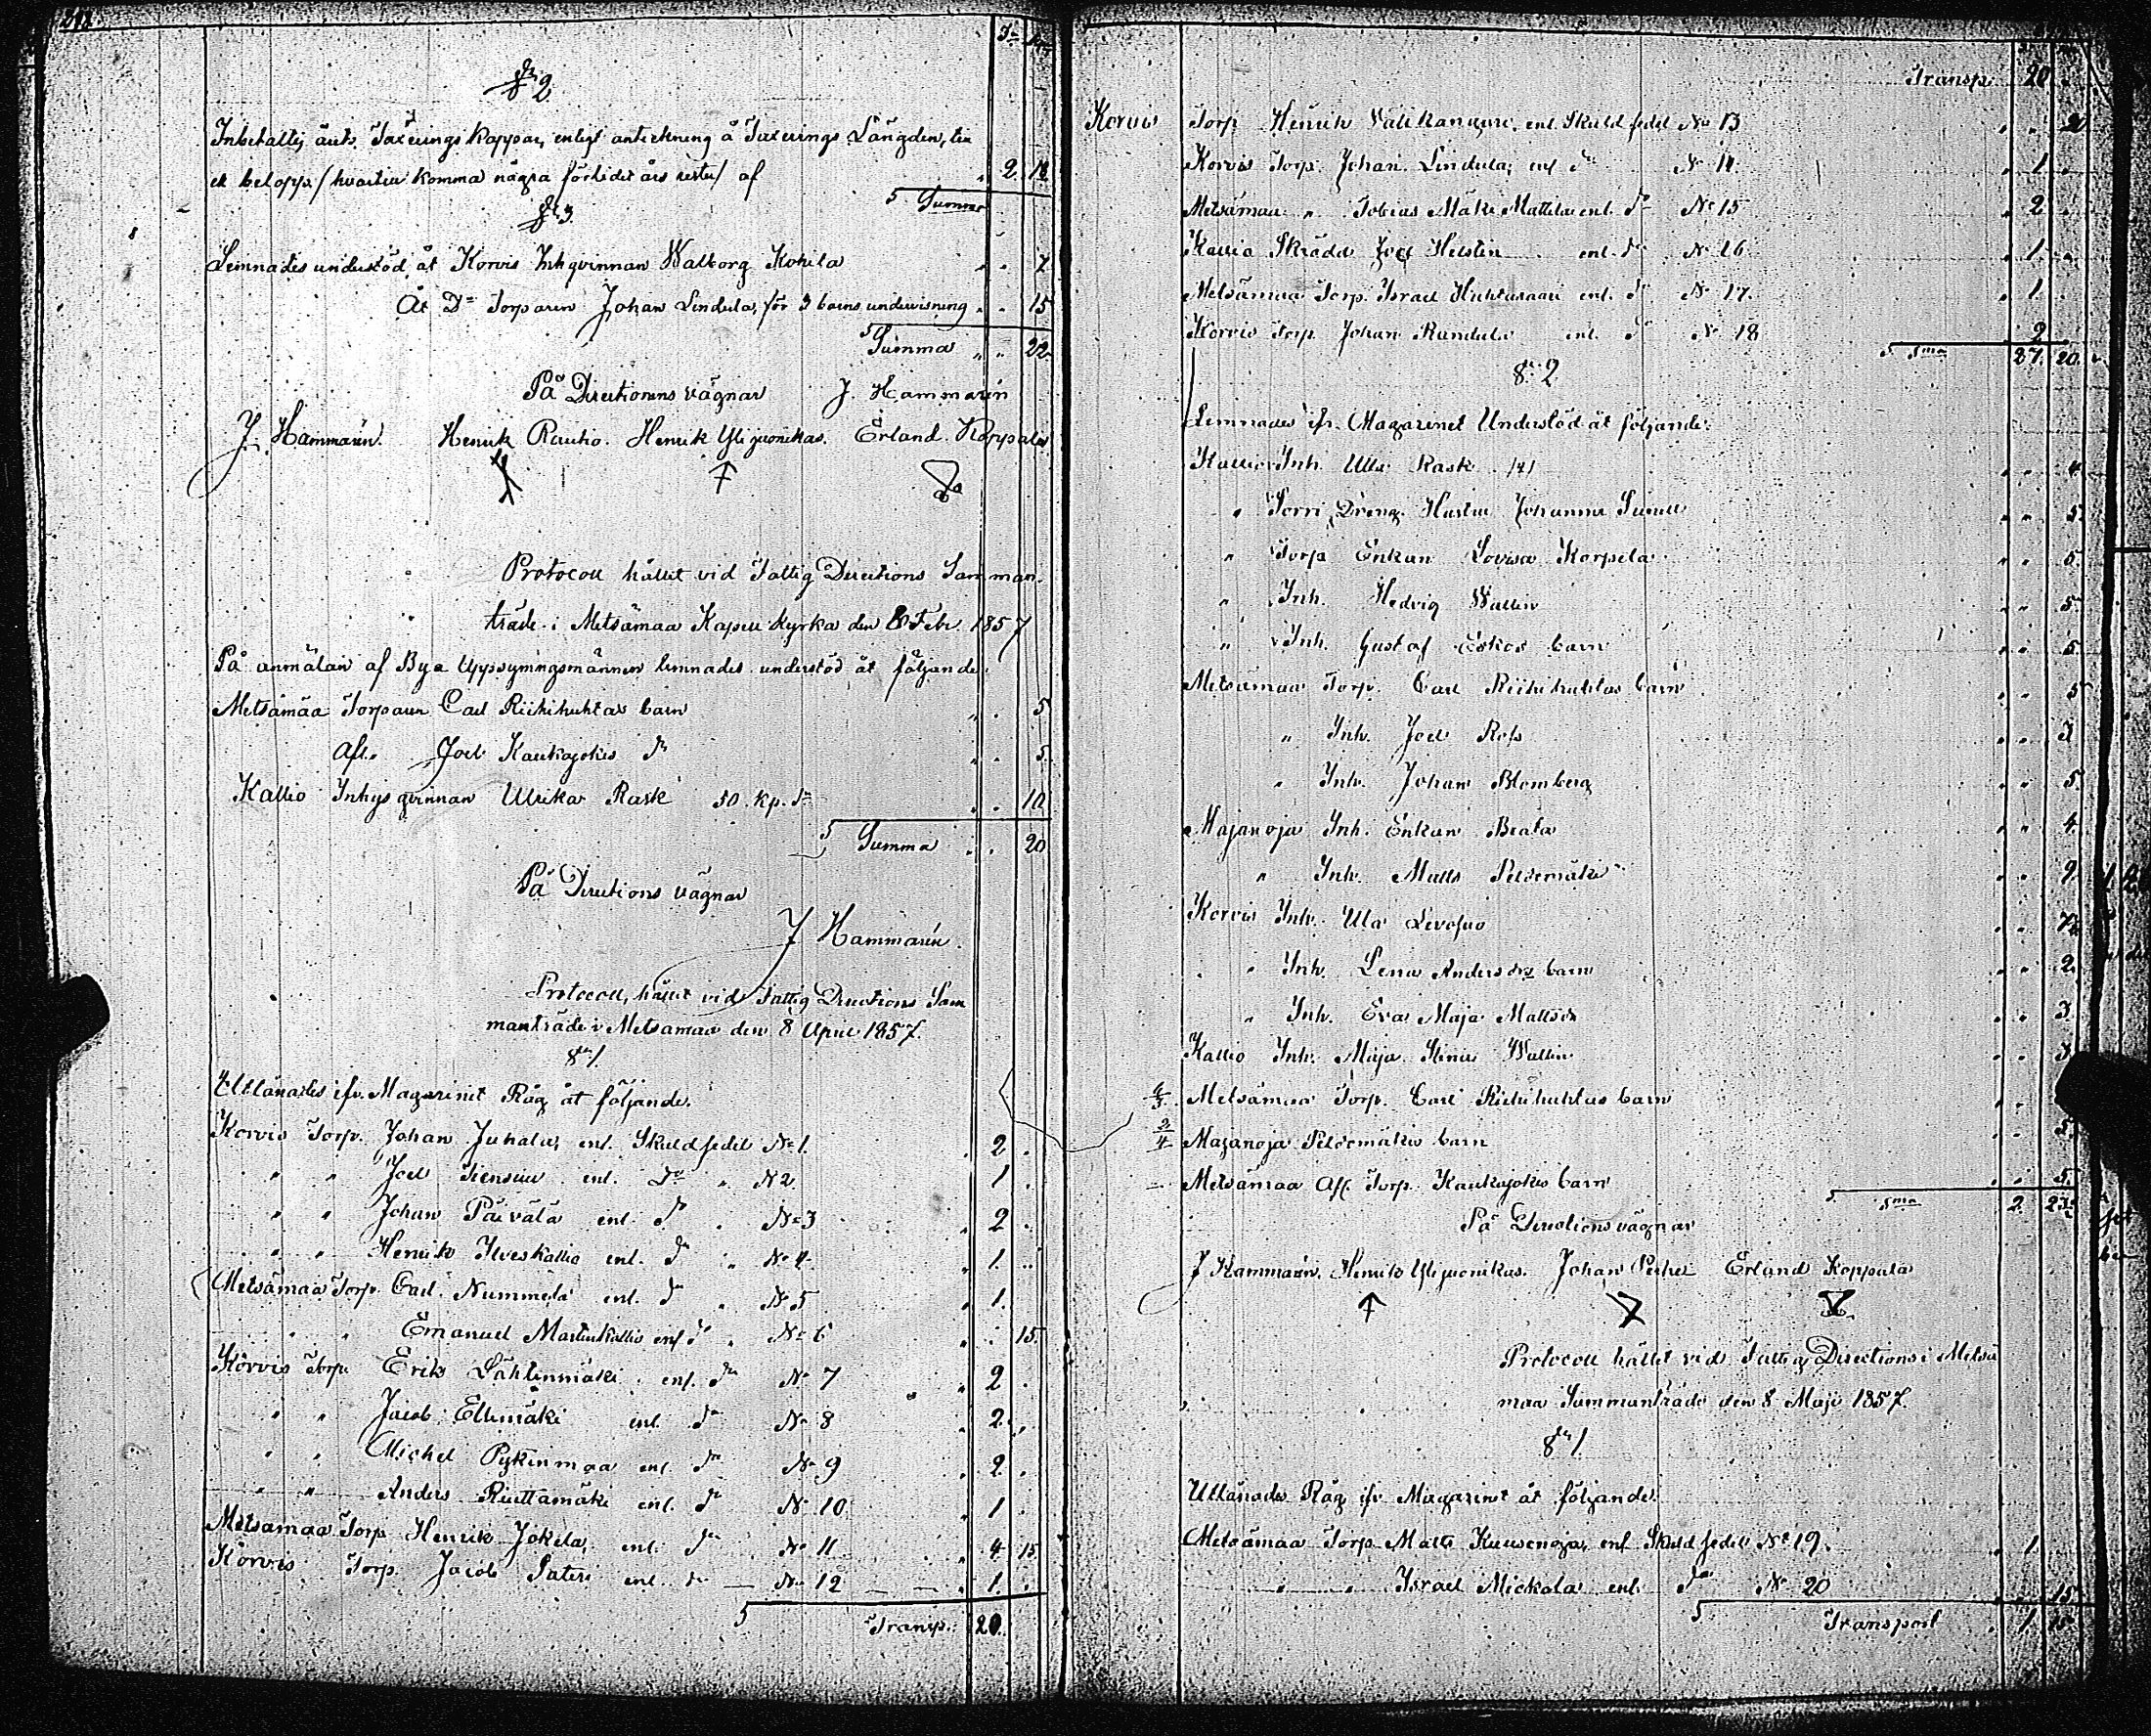 § 2
Inbehaltes årets Taxerings Kappar, enligt anteckning å Taxerings Längden, till
ett belopp / hvartill komma några förledit års rester / af " 2. 12
Summa
§ 3.
Lemnades understöd åt Korvis Inhqvinnan Walborg Kohila " " 7
Åt Do Torparen Johan Lindula, för 3 barns undervisning " " 15
Summa " " 22
På Directionens vägnar J. Hammarén
J. Hammarén. Henrik Rautio. Henrik Ylijuonikas. Erland Koppala
Protocoll hållit vid Fattig Directions Samman-
träde i Metsämaa Kapell Kyrka den 8 Febr. 1857
På anmälan af Bya Uppsyningsmännen lemnades understöd åt följande.
Metsämaa Torparen Carl Riihihuhtas barn " . 5
Afl. Joel Kaukajokis do " . 5.
Kallio Inhysqvinnan Ulrika Rask 50. kp. do " . 10
Summa " . 20
På Directions vägnar
J Hammarén.
Protocoll, hållit vid Fattig Directions Sam
manträde i Metsämaa den 8 April 1857.
§ 1.
Utlånades ifr. Magasinet Råg åt följande.
Korvis Torp. Johan Juhala, enl. Skuldsedel No 1. . 2 .
" " Joel Tiensuu enl. Do " No 2. 1 .
" " Johan Päivälä enl. do . No 3 " 2 .
" " Henrik Ilveskallio enl. do " No 4. " 1. "
Metsämaa Torp. Carl Nummela enl. do " No 5 " 1.
" " Emanuel Martinkallio enl do " No 6 " . 15
Korvis Torp. Erik Lähtinmäki enl. do No 7 " 2 .
" " Jacob Ellimäki enl. do No 8 " 2. "
" " Michel Pykinmaa enl. do No 9 . 2 .
" " Anders Riuttamäki enl. do No 10. . 1 .
Metsämaa Torp Henrik Jokela, enl. do No 11 " 4. 15
Korvis Torp. Jacob Sateri enl. do — No 12 — — " 1. .
Transp. 20.
Transp. 20 .
Korvis Torp Henrik enl. Skuld sedel No 13 " . 2
Korvis Torp. Johan Lindula, enl do No 14. " 1 .
Metsämaa " Tobias Mäki Mattila enl. do No 15 " 2 .
Kallio Skräddr Joel Helstén enl. do No 16 . 1 .
Metsämaa Torp. Israel Huhtasaari enl. do No 17. " 1.
Korvis Torp. Johan Randula enl. do No 18 2
Sma 27. 20.
§ 2
Lemnades ifr. Magasinet Understöd åt följande.
Kallio Inh. Ulla Rask " " 4.
" Torri Dreng. Hustru Johanna " " 5.
" Torp Enkan Lovisa Korpela " " 5.
" Inh. Hedvig Wallin " " 5
" Inh. Gustaf Eskos barn " " 5
Metsämaa Torp. Carl Riihihuhtas barn " " 5
" Inh. Joel Ross " "
" Inh. Johan Blomberg " " 5.
Majanoja Inh. Enkan Beata " " 4.
" Inh. Matts Peldomäki " " 9.
Korvis Inh. Ulla Levosuo " "
" Inh. Lena Andersdrs barn " " 2.
" Inh. Eva Maja Mattsdr " " 3
Kallio Inh. Maja Stina Wallin " " 3
Metsämaa Torp. Carl Riihihuhtas barn
2/4 Majanoja Peldomäkis barn " " 5
Metsämaa Afl. Torp. Kaukajokis barn " " 5.
Sma 2.
På Directions vägnar
J Hammarén. Henrik Ylijuonikas. Johan Erland Koppala
Protocoll hållit vid Fattig Directions i Metsä
maa Sammanträde den 8 Maji 1857.
§ 1.
Utlånades Råg ifr Magasinet åt följande.
Metsämaa Torp. Matts Kuusenoja, enl Skuldsedel No 19. . 1 .
" " Israel Mickola enl. do No 20 " . 15
Transport . 1. 15